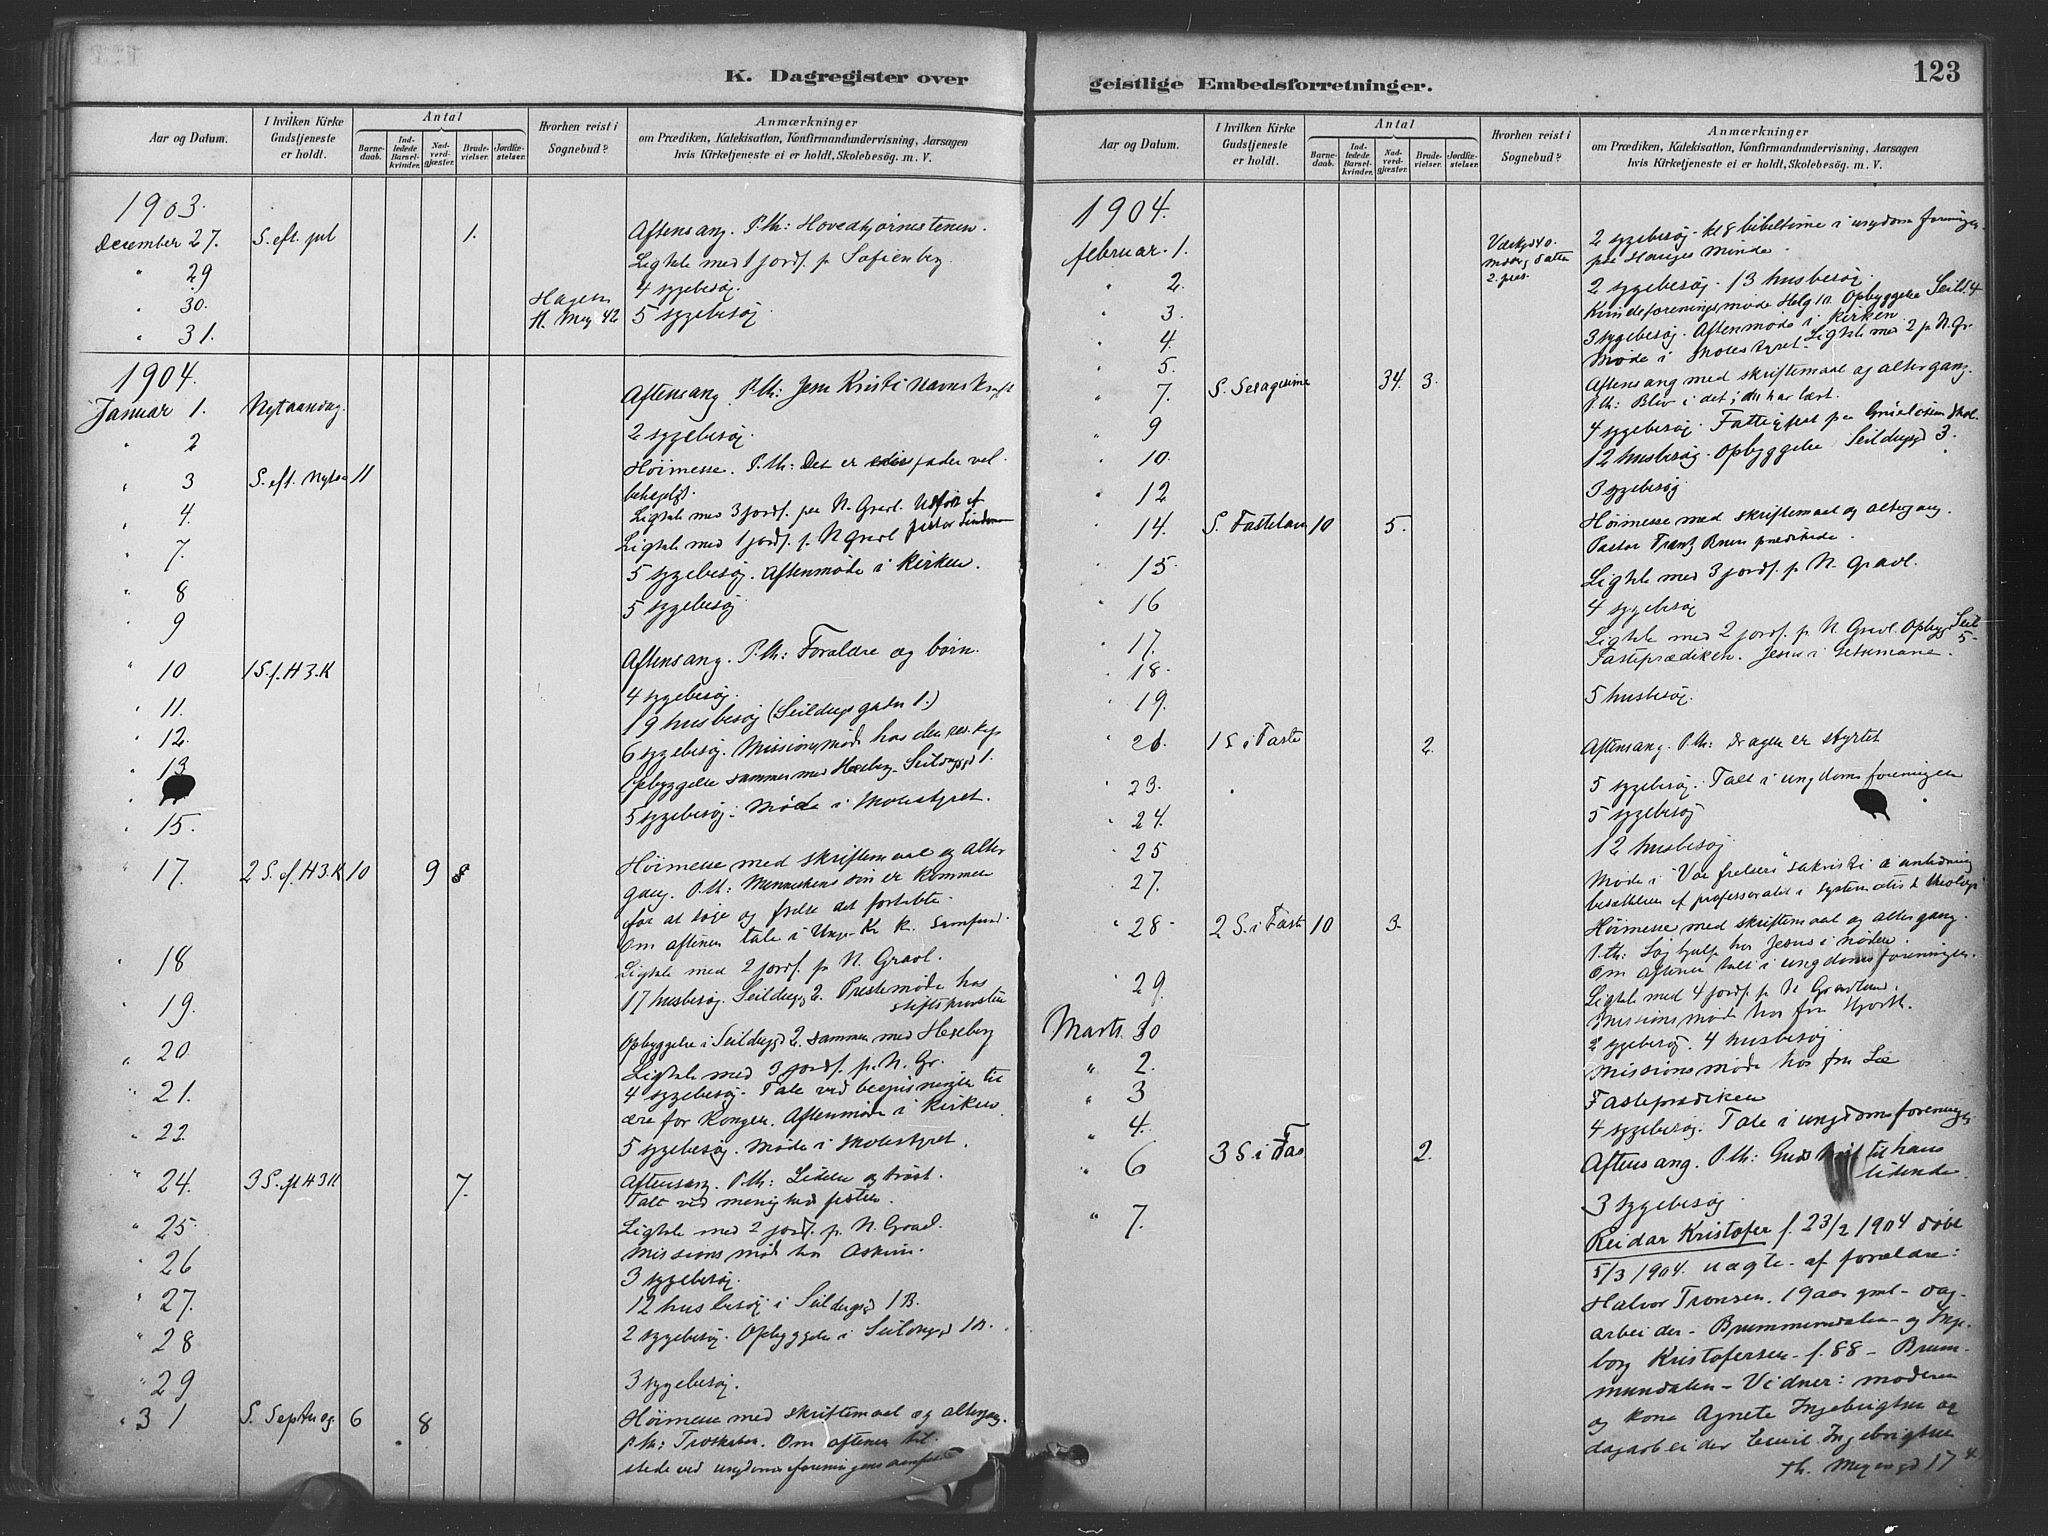 K. Dagregister over
Aar og Datum.
I hvilken Kirke Gudstjeneste er holdt.
Antal
Barne-daab.
Ind-ledede Barsel-kvinder.
Nad-verd-gjester.
Brude-vielser.
Jordfæ-stelser.
Hvorhen reist i Sognebud?
Anmærkninger
om Prædiken, Katekisation, Konfirmandundervisning, Aarsagen
hvis Kirketjeneste ei er holdt, Skolebesøg. m. V.
1903.
December 27. S. eft. jul 1. Aftensang. P.th: Hovedhjørnestenen.
" 29 Ligtale med 1 jordf. p Sofienberg
" 30. Hagen 4 sygebesøg.
" 31. 42 5 sygebesøg.
1904.
Januar 1. Nytaarsdag. Aftensang. P.th: Jesu Kristi navns kraft
" 2 2 sygebesøg.
" 3 S. eft. Nytaar 11 Høimesse. P.th: Det er eders fader vel-
behageligt.
" 4. Ligtale med 3 jordf. paa N. Gravl. Udført af
pastor
" 7. Ligtale med 1 jordf. p. N Gravl
" 8 5 sygebesøg. Aftenmøde i kirken.
" 9 5 sygebesøg
" 10 1 S. f. H 3. K Aftensang. P.th: Forældre og børn.
" 11. 4 sygebesøg.
" 12. 19 husbesøg (Seildugsgaden 1.)
" 13 6 sygebesøg. Missionsmøde hos den res. kap
Opbyggelse sammen med Hexeberg Seildugsgd 1.
" 15. 5 sygebesøg. Møde i
" 17. 2 S. ef. H 3. K 10 9 8 Høimesse med skriftemaal og alter
gang. P.th: Menneskens søn er kommen
for at søge og frelse det fortabte.
Om aftenen tale i Unge K. k. samfund.
" 18 Ligtale med 2 jordf. p N. Gravl.
" 19. 17 husbesøg. Seildugsgd 2. Prestemøde hos
stiftsprovsten
" 20 Opbyggelse i Seildugsgd 2. sammen med Hexeberg
" 21. Ligtale med 3 jordf. p. N. Gr.
4 sygebesøg. Tale ved bespisningen til
" 22. ære for Kongen. Aftenmøde i kirken.
5 sygebesøg. Møde i
" 24. 3 S. ef H 3 K 7. Aftensang. P.th: Lidelse og trøst.
Tale ved menighedsfesten.
" 25. Ligtale med 2 jordf. p. N. Gravl.
" 26 Missionsmøde hos Askim.
3 sygebesøg.
" 27. 12 husbesøg i Seildugsgd 1 B.
" 28 2 sygebesøg. Opbyggelse i Seildugsgd 1 B.
" 29 3 sygebesøg.
" 31 S. Septuag 6 8 Høimesse med skriftemaal og altergang.
P.th: Troskaben. Om aftenen til
stede ved ungdomsforeningens
geistlige Embedsforretninger.
123
Aar og Datum.
I hvilken Kirke Gudstjeneste er holdt.
Antal
Barne-daab.
Ind-ledede Barsel-kvinder.
Nad-verd-gjester.
Brude-vielser.
Jordfæ-stelser.
Hvorhen reist i Sognebud?
Anmærkninger
om Prædiken, Katekisation, Konfirmandundervisning, Aarsagen
hvis Kirketjeneste ei er holdt, Skolebesøg. m. V.
1904.
februar. 1. 2 sygebesøg. kl 8 bibeltime i ungdomsforeningen
paa Hauges Minde.
" 2. 2 sygebesøg. 13 husbesøg
" 3. Kvindeforeningsmøde Helg 12. Opbyggelse Seild. 4
3 sygebesøg. Aftenmøde i kirken
" 4. Ligtale med 2 p N. Gr.
" 5. Møde i
" 7. S. Sexagesima 34. 3. Aftensang med skriftemaal og altergang.
P.th: Bliv i det, du har lært.
" 9 4 sygebesøg. Fattigfest paa
" 10. 12 husbesøg. Opbyggelse Seildugsgd 3.
" 12 3 sygebesøg
" 14. S. Fastelavn 10 5. Høimesse med skriftemaal og altergang.
Pastor Frantz Bruun prædikede.
" 15. Ligtale med 3 jordf. p N. Gravl.
" 16 4 sygebesøg
" 17. Ligtale med 2 jordf. p N. Gravl. Opbygg Seil
5-
" 18. Fasteprædiken. Jesus i Getsemane.
" 19. 5 husbesøg.
" 21. 1 S i Faste 2. Aftensang. P.th: Dragen er styrtet
" 23. 5 sygebesøg. Tale i ungdomsforeningen
" 24. 5 sygebesøg
" 25 12 husbesøg
" 27. Møde i Vor frelsers sakristi i anledning
besættelsen af professoratet i systematisk theologi
" 28 - 2 S. i Faste 10 3. Høimesse med skriftemaal og altergang.
P.th: Søg hjælp hos Jesus i nøden.
Om aftenen tale i ungdomsforeningen.
" 29. Ligtale med 4 jordf. p N Gravlund.
Missionsmøde hos fru Hjorth.
Marts. 2 sygebesøg. 4 husbesøg
" 2. Missionsmøde hos fru Lie
" 3 Fasteprædiken
" 4. 4 sygebesøg. Tale i ungdomsforeningen
" 6 3 S. i Fas 2. Aftensang. P.th: Guds til hans
lidende.
" 7. 3 sygebesøg
Reidar Kristofer f. 23/2 1904 døbt
5/3 1904. uægte. af forældre:
Halvor Tronsen. 19 aar gml - dag-
arbeider - Brummundalen - og Inge-
borg Kristofersen - f. 88 - Brum-
mundalen - Vidner: moderen
og kone Agnete Ingebrigtsen og
dagarbeider Emil Ingebrigtsen
th. Meyersgd 17 4.